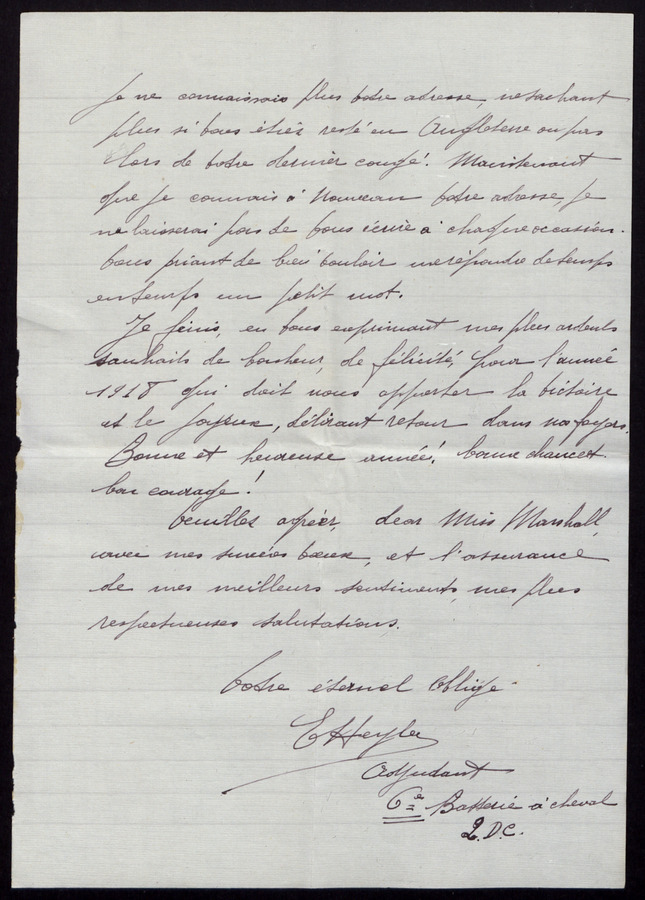 Je ne connaissais plus votre adresse, ne sachant
plus si vous étiez resté en Angleterre ou pas
lors de votre dernier congé. Maintenant
que je connais à nouveau votre adresse, je
ne laisserai pas de vous écrire à chaque occasion.
vous priant de bien vouloir me répondre de temps
en temps un petit mot.
Je finis, en vous exprimant mes plus ardents
souhaits de bonheur, de félicité, pour l'année
1918 qui doit nous apporter la victoire
et le joyeux, délirant retour dans nos foyers.
Bonne et heureuse année! bonne chance et
bon courage!
Veuillez agréer, dear Miss Marshall,
avec mes sincères vœux, et l'assurance
de mes meilleurs sentiments, mes plus
respectueuses salutations.
Votre éternel obligé
E Heyla
Adjudant
6e Batterie à cheval
2. D.C.